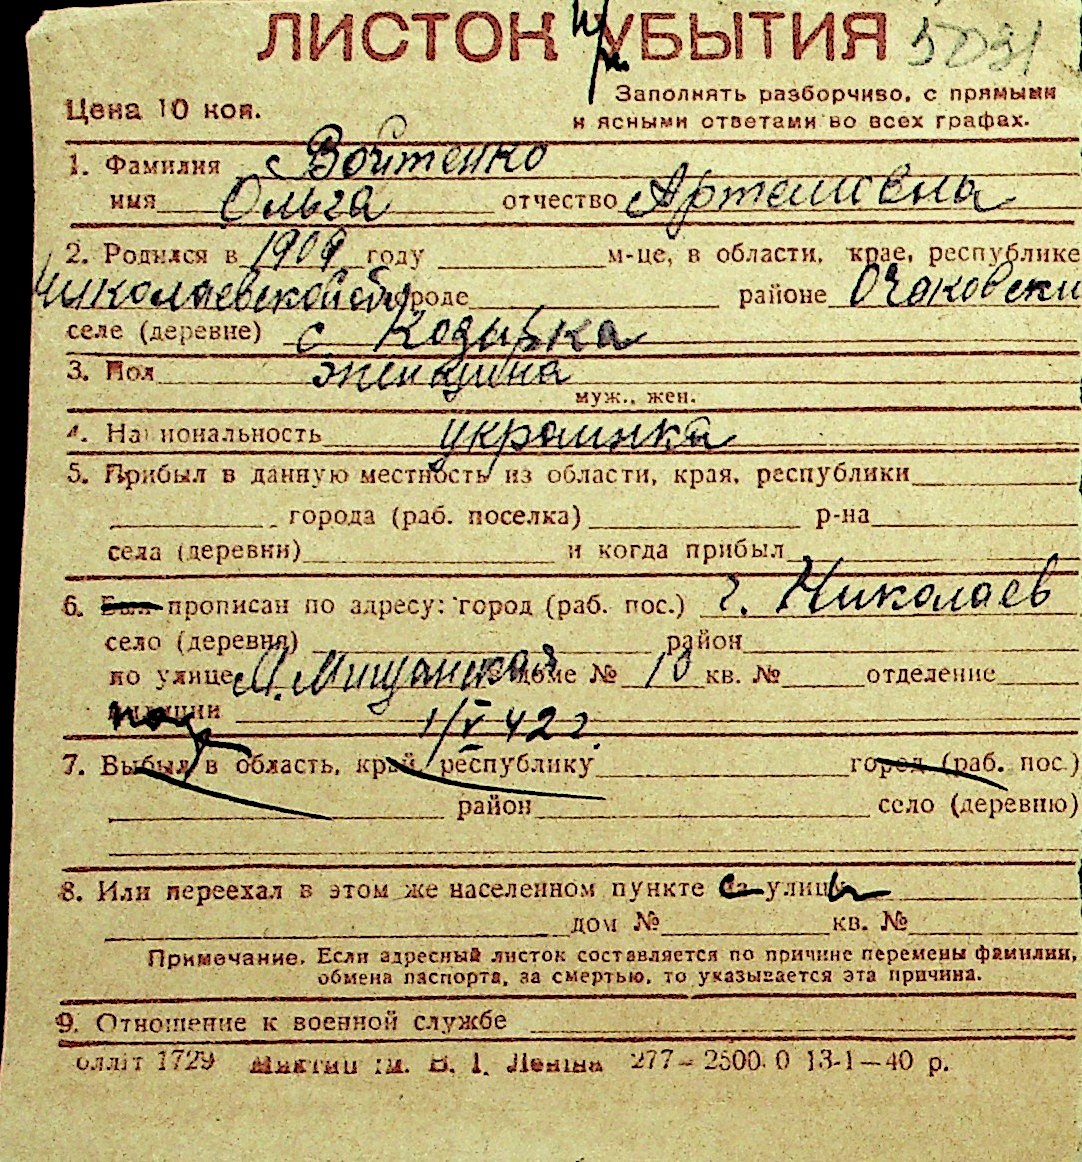 ЛИСТОК УБЫТИЯ 5031
Цена 10 коп.
Заполнять разборчиво, с прямыми
и ясными ответами во всех графах.
1. Фамилия Войтенко
имя Ольга отчество Артемовна
2. Родился в 1909 году м-це, в области, крае, республике
Николаевской обл. городе районе Очаковский
селе (деревне) с Козырка
3. Пол женщина
муж., жен.
4. Национальность украинка
5. Прибыл в данную местность из области, края, республики
города (раб. поселка) р-на
села (деревни) и когда прибыл
6. Был прописан по адресу: город (раб. пос.) г. Николаев
село (деревня) район
по улице М. Мищанская доме № 10 кв. № отделение
милиции 1/V 42 г.
7. Выбыл в область, край, республику город (раб. пос.)
район село (деревню)
8. Или переехал в этом же населенном пункте улицы
дом № кв. №
Примечание. Если адресный листок составляется по причине перемены фамилии,
обмена паспорта, за смертью, то указывается эта причина.
9. Отношение к военной службе
оллит 1729 им. В. І. Леніна 277–2500.0 13-1–40 р.